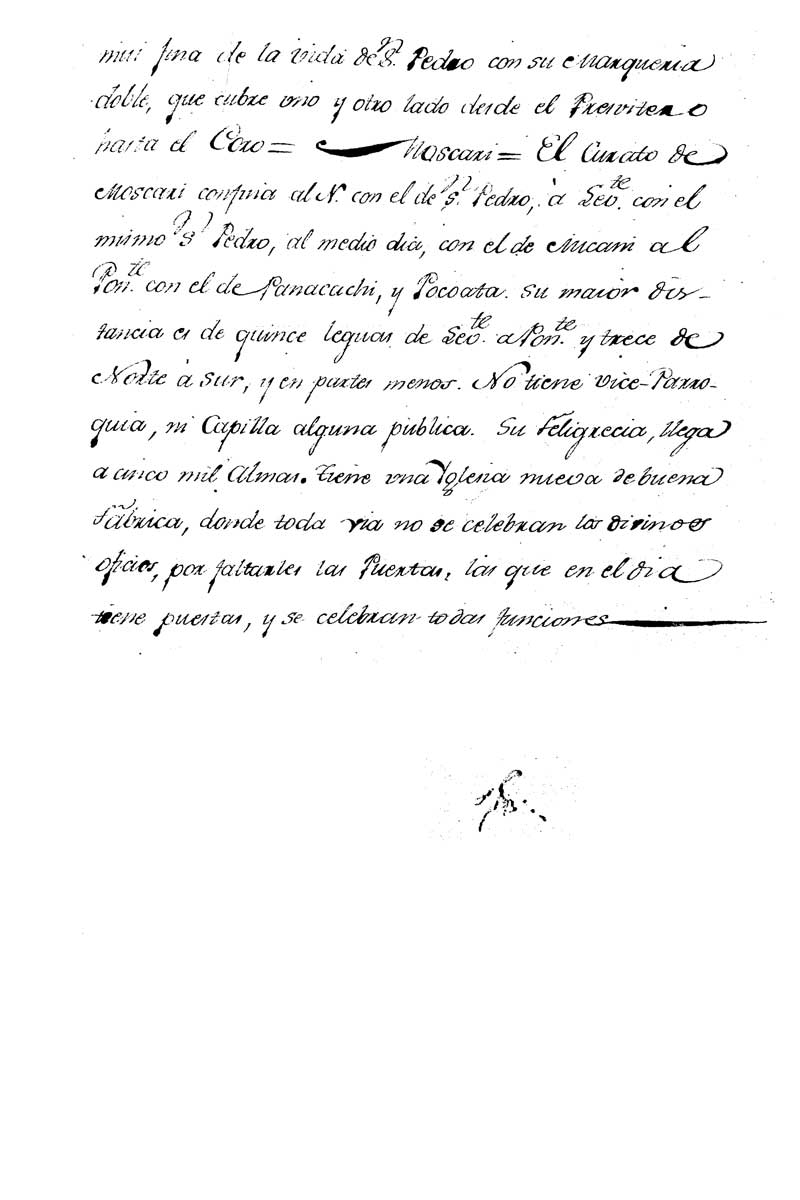 mui fina de la vida de Sn. Pedro con su Marqueria
doble, que cubre uno y otro lado desde el Presvitero
hasta el Coro = Moscari = El Curato de
Moscari confina al N. con el de Sn. Pedro, à Levte. con el
mismo Sn. Pedro, al medio dia, con el de Micani al
Ponte. con el de Panacachi, y Pocoata. Su maior dis-
tancia es de quince leguas de Levte. a Ponte. y trece de
Norte à Sur, y en partes menos. No tiene Vice-Parro-
quia, ni Capilla alguna publica. Su Feligrecia, llega
a cinco mil Almas. Tiene una Yglesia nueva de buena
Fabrica, donde toda via no se celebran los divinos
oficios, por faltarles las Puertas, las que en el dia
tiene puestas, y se celebran todas funciones